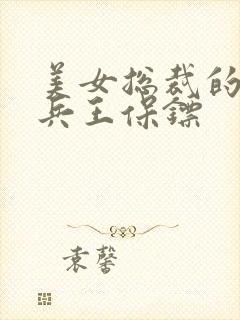 美女总裁的
兵王保镖
袁馨